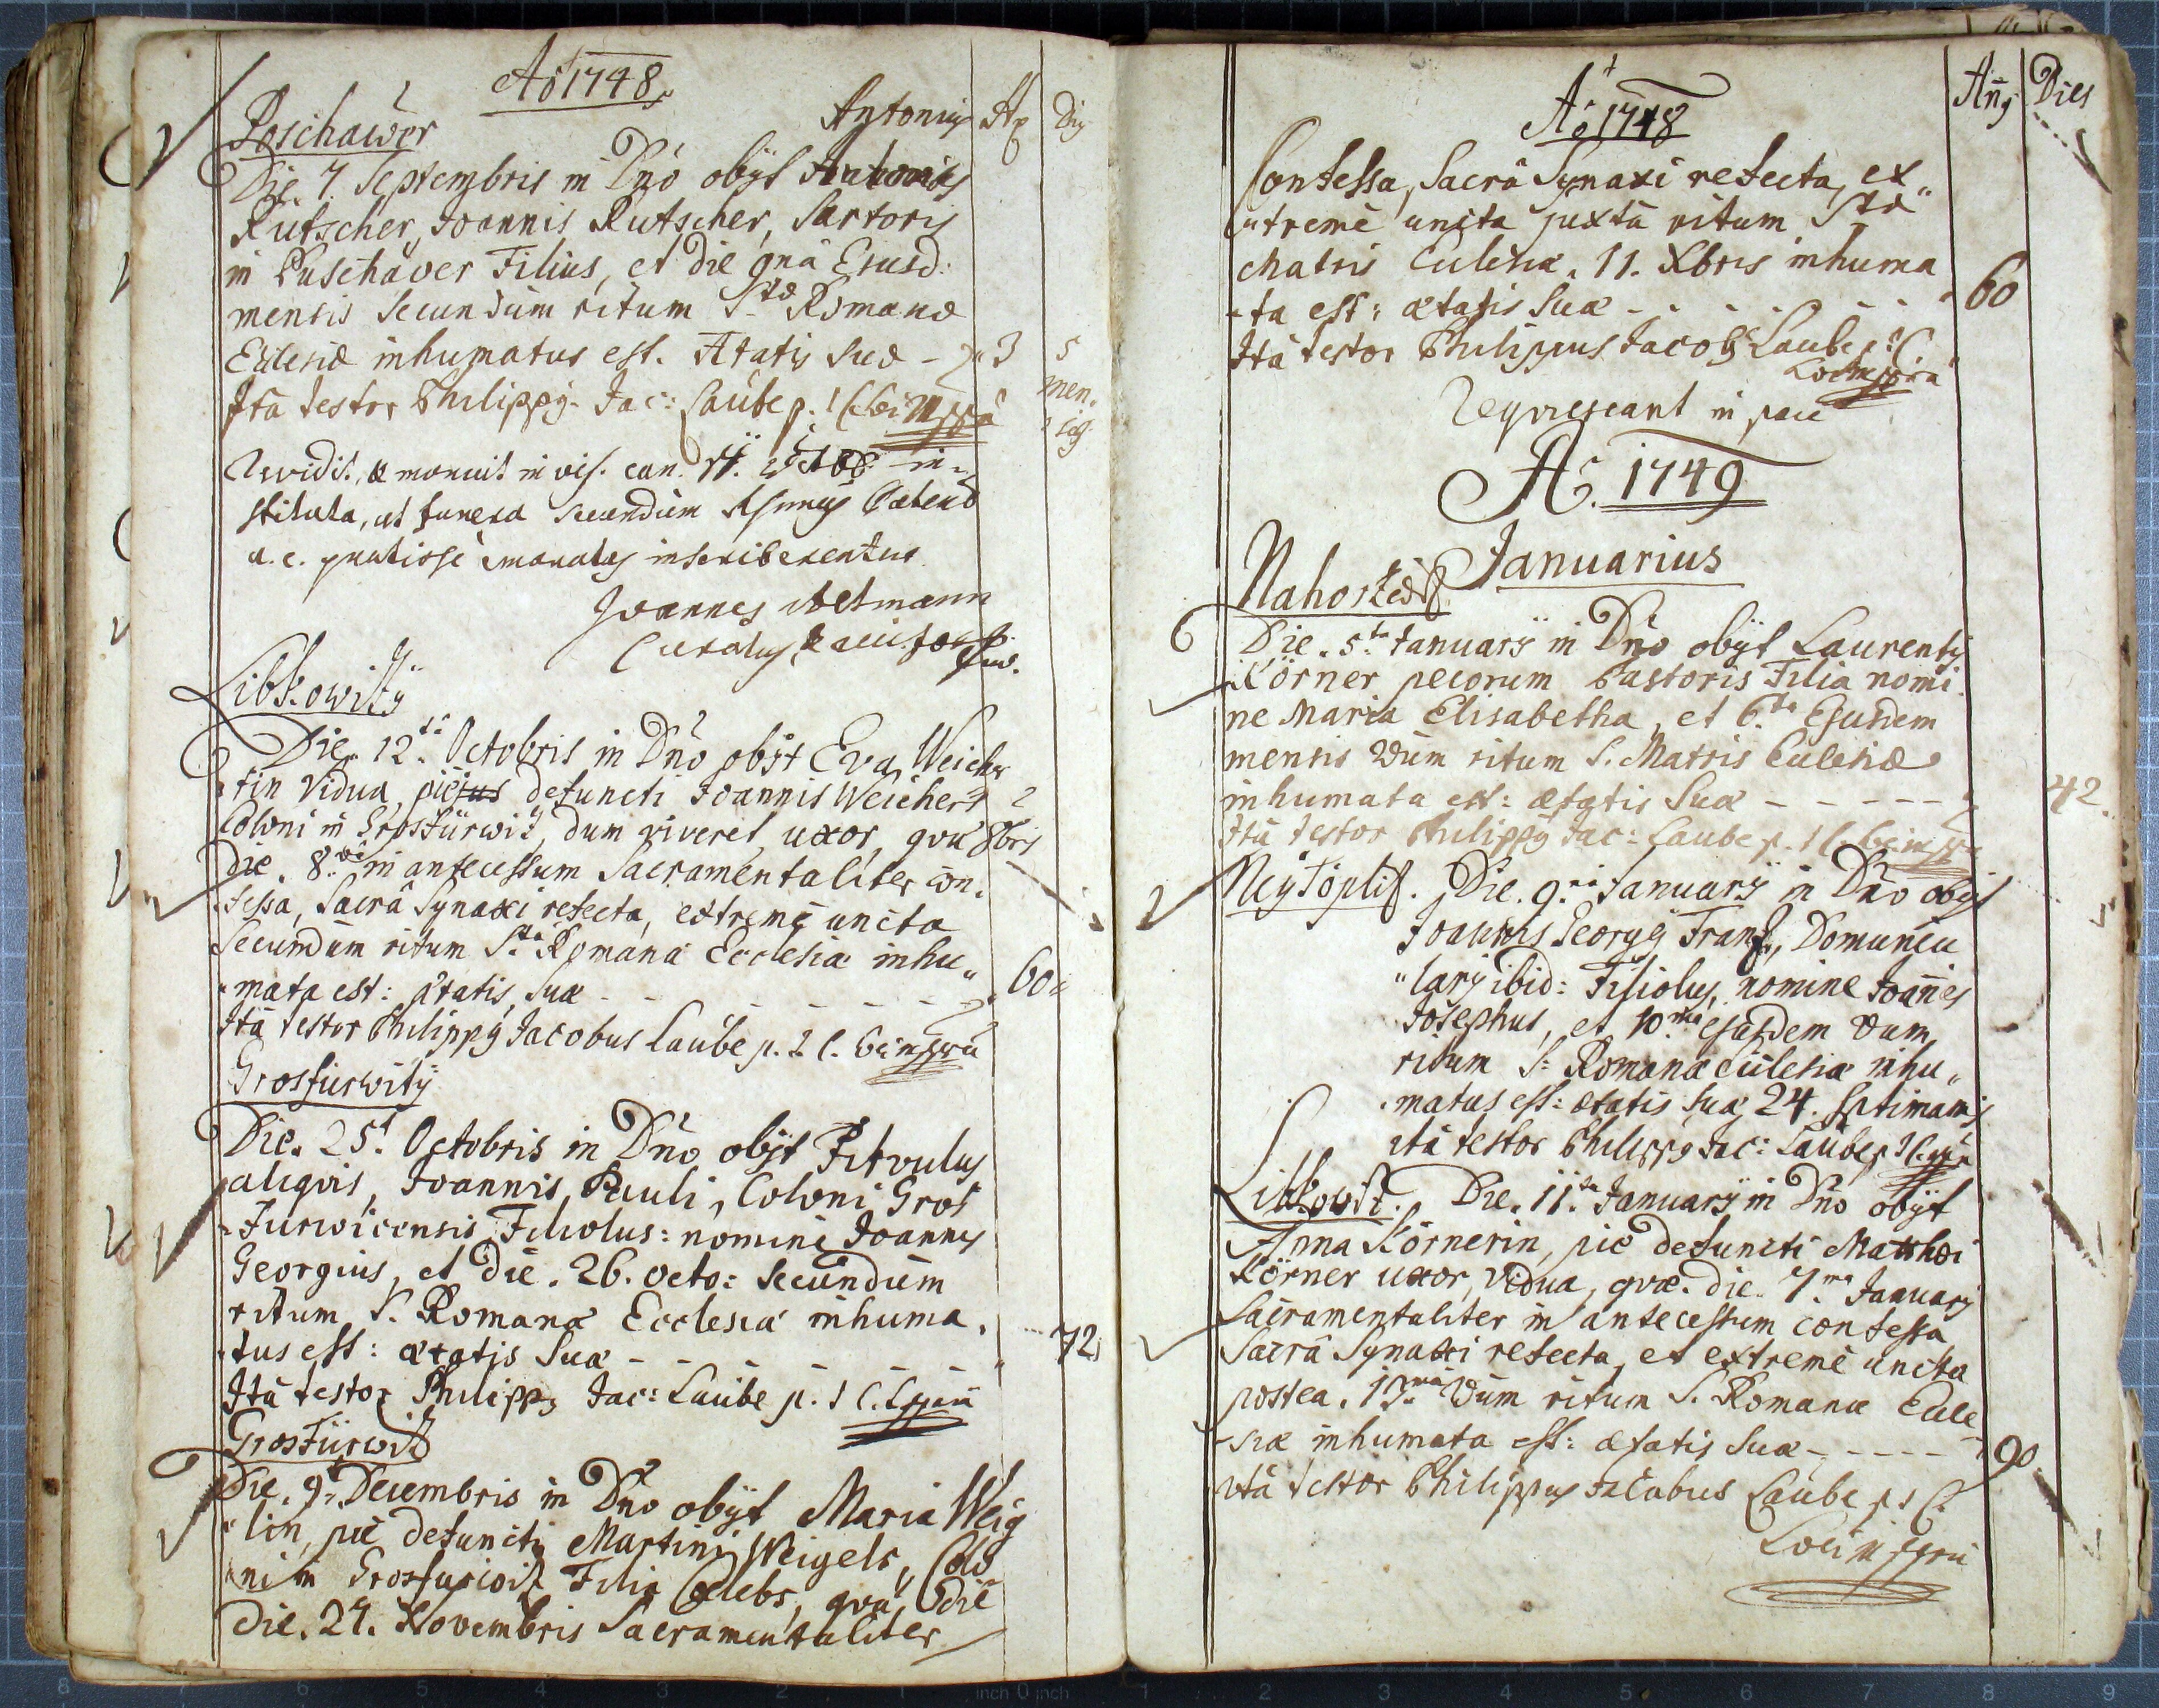 Ao 1748
Antonius
An Dies
Poschawer
Die 7 Septembris in Dno obyt Antonius
Rutscher, Joannis Rutscher, Sartoris
in Puschaver Filius, et Die 9na Ejusd:
mensis Secundum ritum Stæ Romanæ
Eclesiæ inhumatus est. Ætatis suæ - 3 5
men.
Ita testor Philippus Jac: Laube p. t. Loci
Revidit, & monuit in vis. can.
stituta, ut funera secundum
a. c. emanatas inscriberentur
Joannes
Curatus
Libkowitz
Die 12ta Octobris in Dno obyt Eva Weicher
tin Vidua, piejus defuncti Joannis Weichert
Coloni in Grosfürwitz, dum viveret, uxor, quæ 8bris
die 8va in antecessum Sacramentaliter con
fessa, Sacrâ Synaxi refecta, extremè uncta
Secundum ritum Stæ Romanæ Ecclesiæ inhu„
mata est: ætatis Suæ - - - - - - - 60
Ita testor Philippus Jacobus Laube p. t. l.
Grosfurwitz
Die. 25ta Octobris in Dno obyt
aliquis, Joannis Pauli, Coloni Gros
Furwicensis Filiolus: nomine Joannes
Georgius, et die. 26. octo: Secundum
ritum S. Romanæ Ecclesiæ inhuma„
tus est: ætatis Suæ - - - - - - 72
Ita testor Philippus Jac: Laube p. t. l.
Grosfürwitz
Die. 9. Decembris in Dno obyt Maria Weig
lin, piè defuncti Martini Weigels, Colo
ni in Grosfurwitz Filia Cœlebs, quæ Die
die. 24. Novembris Sacramentaliter
Ao 1748
Ann Dies
Confessa, Sacrâ Synaxi refecta, ex„
tremè uncta juxtà ritum Stæ
Matris Eclesiæ. 11. Xbris inhuma
ta est: ætatis suæ - - - - - 60
Ità testor Philippus Jacobus Laube p: t.
Loci
Requiescant in pace
Ao. 1749
Januarius
Die. 5ta January in Dno obyt Laurenty
Körner pecorum Pastoris Filia nomi
ne Maria Elisabetha, et 6ta Ejusdem
mensis 2dum ritum S. Matris Eclesiæ
inhumata est: ætatis Suæ - - - - - 42.
Ità testor Philippus Jac: Laube p. t. l.
Neytöplitz. Die. 9na January in Dno obyt
Joannis Georgy Frantz, Domuncu
„lary ibid: Filiolus, nomine Joannes
Josephus, et 10ma ejusdem 2dum
ritum S: Romanæ Eclesiæ inhu„
matus est: ætatis suæ 24. Septimanis
ità testor Philippus Jac: Laube p. t. l.
Libkowitz. Die. 11ta January in Dno obyt
Anna Körnerin, piè defuncti Matthæi
Körner uxor, Vidua, quæ. die. 7ma January
Sacramentaliter in antecessum confessa
Sacrâ Synaxi refecta, et extremè uncta
postea. 13ma 2dum ritum S. Romanæ Ecle
siæ inhumata est: ætatis Suæ - - - - - 90
ità testor Philippus Jacobus Laube p. t. l.
Loci